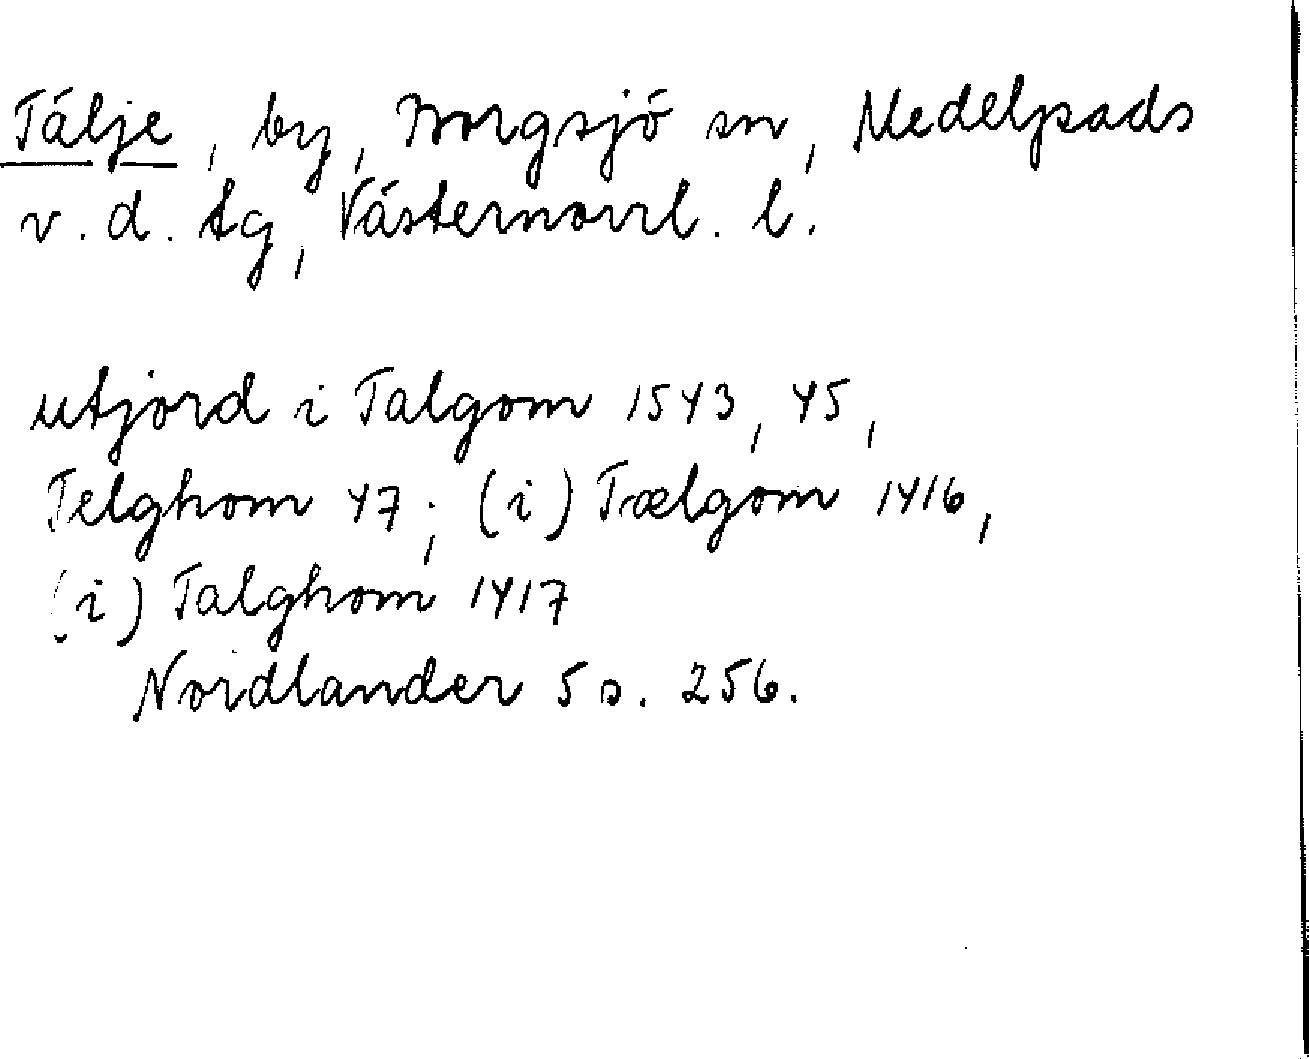 Tälje, by, Borgsjö sn, Medelpads
v. d. tg, Västernorrl. l.
utjord i Talgom 1543, 45,
Telghom 47; (i) Tælgom 1416,
(i) Talghom 1417
Nordlander 5 s. 256.